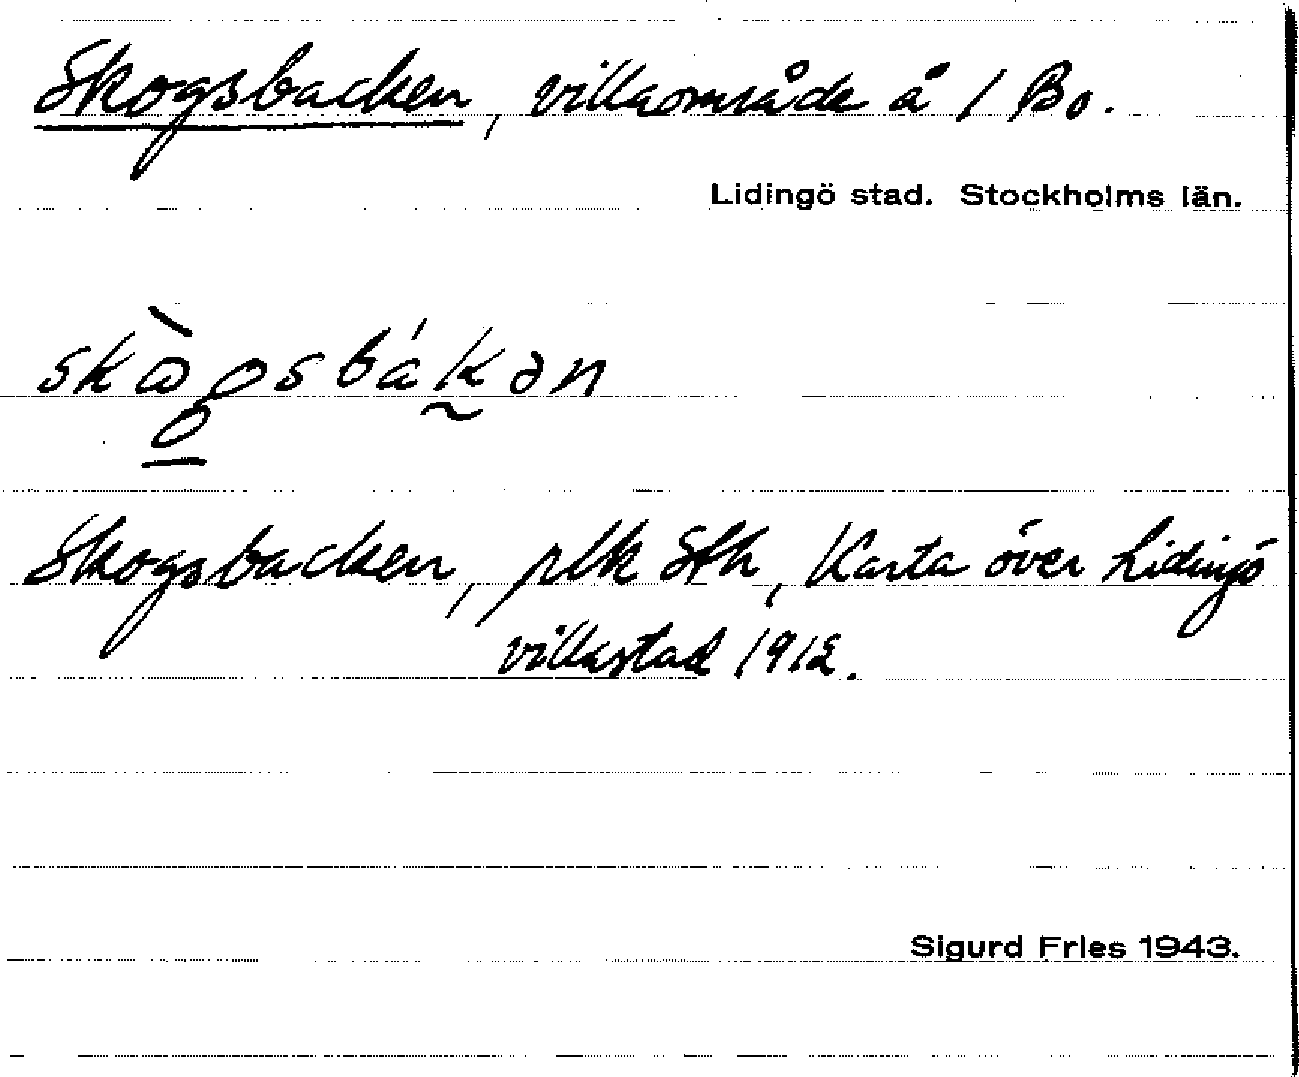 Skogsbacken, villaområde å 1 Bo.
Lidingö stad. Stockholms län.
skɷ̀gsbákən
Skogsbacken, plk Sth, Karta över Lidingö
villastad 1912.
Sigurd Fries 1943.